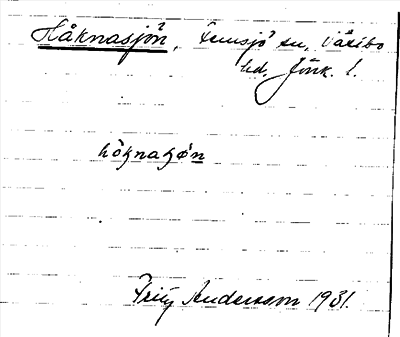 Håknasjön, Femsjö sn, Västbo
hd. Jönk. l.
hökna
Fritz Andersson 1931.